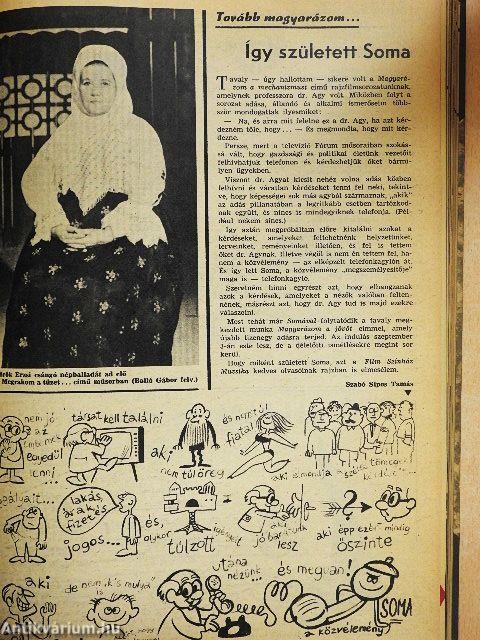 Tovább magyarázom...
Így született Soma
Tavaly — úgy hallottam — sikere volt a Magyaré-
zom a mechanizmust című rajzfilmsorozatunknak,
amelynek professzora dr. Agy volt. Miközben folyt a
sorozat adása, állandó és alkalmi ismerőseim több-
ször mondogattak ilyesmiket:
— Na, és arra mit felelne ez a dr. Agy, ha azt kér-
dezném tőle, hogy... — És megmondta, hogy mit kér-
dezne.
Persze, mert a televízió Fórum műsoraiban szokás-
sá vált, hogy gazdasági és politikai életünk vezetőit
felhívhatjuk telefonon és kérdezhetjük őket bármi-
lyen ügyekben.
Viszont dr. Agyat kicsit nehéz volna adás közben
felhívni és váratlan kérdéseket tenni fel neki, tekint-
ve, hogy képességei sok más agyból származnak, „akik”
az adás pillanatában a legritkább esetben tartózkod-
nak együtt, és nincs is mindegyiknek telefonja. (Pél-
dául nekem sincs.)
Így aztán megpróbáltam előre kitalálni azokat a
kérdéseket, amelyeket feltehetnénk helyzetünket,
terveinket, reményeinket illetően, és fel is tettem
őket dr. Agynak. Illetve végül is nem én tettem fel, ha-
nem a közvélemény — az elképzelt telefonkagylón át.
És így lett Soma, a közvélemény „megszemélyesítője”
maga is — telefonkagyló.
Szeretném hinni egyrészt azt, hogy elhangzanak
azok a kérdések, amelyeket a nézők valóban felten-
nének, másrészt azt, hogy dr. Agy tud is majd ezekre
válaszolni.
Most tehát már Somával folytatódik a tavaly meg-
kezdett munka Magyarázom a jövőt címmel, amely
újabb tizenegy adásra terjed. Az indulás szeptember
3-án este lesz, de a délelőtti ismétlésekre megint sor
kerül.
Hogy miként született Soma, azt a Film Színház
Muzsika kedves olvasóinak rajzban is elmesélem.
Szabó Sipos Tamás
Ernsi csángó népballadát ad elő
Megrakom a tüzet... című műsorban (Balló Gábor felv.)
nem jó
az
embernek
egyedül
lenni
társat kell találni
aki
nem túl öreg
és nem túl
fiatal
aki elmondja a széles tömegek
kérdéseit
lakás,
árak és
fizetés
jogos...
és,
olykor
túlzott
igényeit
aki
jó barátjuk
lesz
aki épp ezért mindig
őszinte
aki
de nem „k's mulya” is
utána
nézünk...
és megvan!
SOMA
(a közvélemény)
Antikvarium.hu